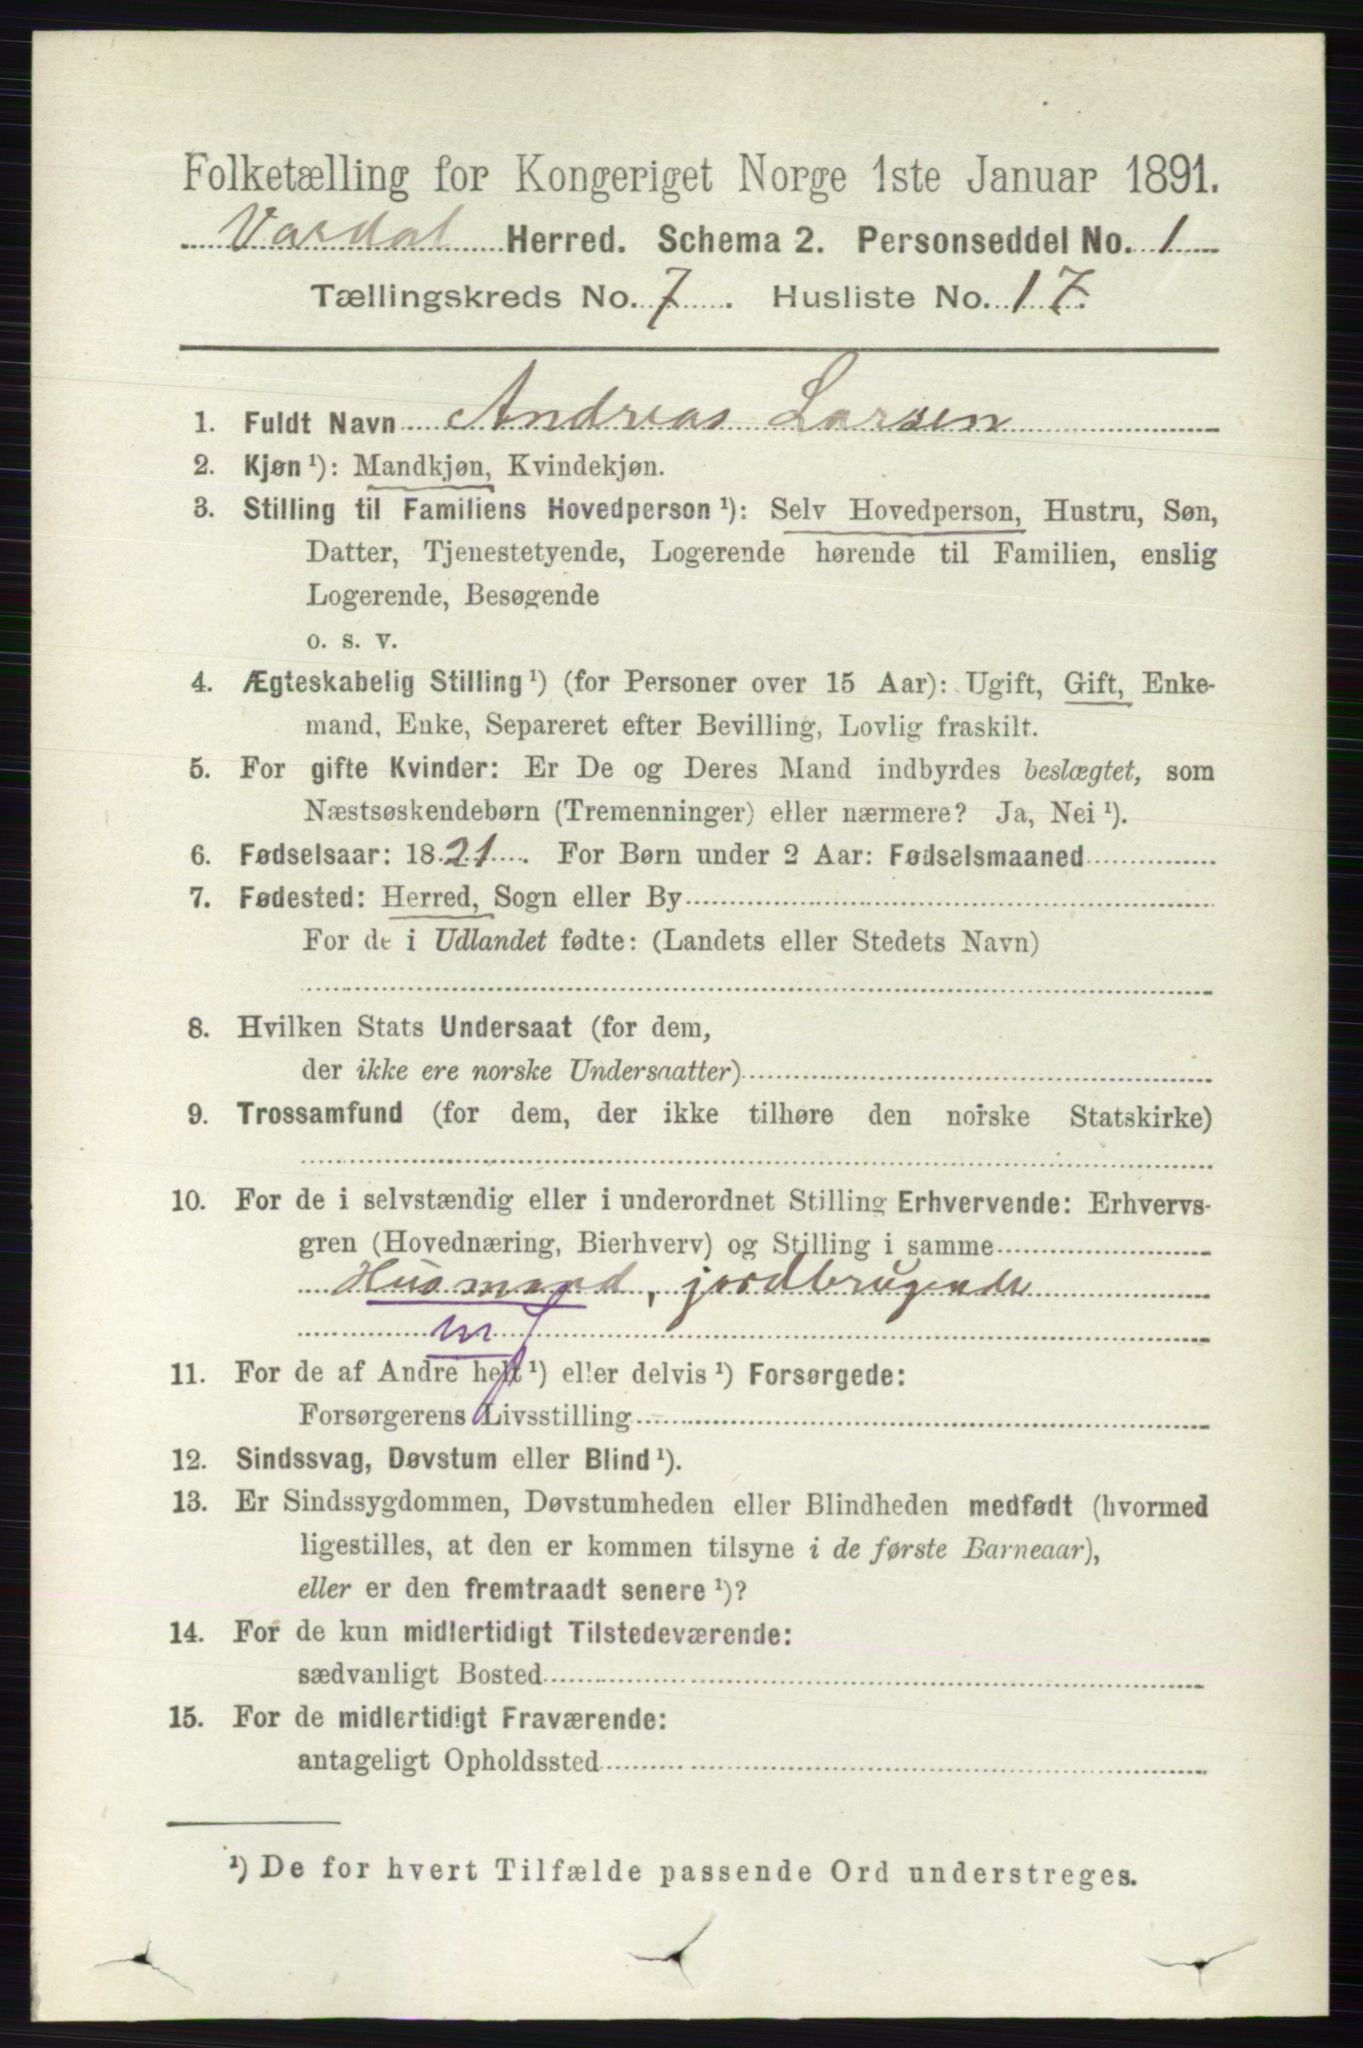 Folketælling for Kongeriget Norge 1ste Januar 1891.
Vardal Herred. Schema 2. Personseddel No. 1
Tællingskreds No. 7. Husliste No. 17.
1. Fuldt Navn Andreas Larsen
2. Kjøn ¹): Mandkjøn, Kvindekjøn.
3. Stilling til Familiens Hovedperson ¹): Selv Hovedperson, Hustru, Søn,
Datter, Tjenestetyende, Logerende hørende til Familien, enslig
Logerende, Besøgende
o. s. v.
4. Ægteskabelig Stilling ¹) (for Personer over 15 Aar): Ugift, Gift, Enke-
mand, Enke, Separeret efter Bevilling, Lovlig fraskilt.
5. For gifte Kvinder: Er De og Deres Mand indbyrdes beslægtet, som
Næstsøskendebørn (Tremenninger) eller nærmere? Ja, Nei ¹).
6. Fødselsaar: 1821. For Børn under 2 Aar: Fødselsmaaned
7. Fødested: Herred, Sogn eller By
For de i Udlandet fødte: (Landets eller Stedets Navn)
8. Hvilken Stats Undersaat (for dem,
der ikke ere norske Undersaatter)
9. Trossamfund (for dem, der ikke tilhøre den norske Statskirke)
10. For de i selvstændig eller i underordnet Stilling Erhvervende: Erhvervs-
gren (Hovednæring, Bierhverv) og Stilling i samme
Husmand, jordbrugende
mJ
11. For de af Andre helt ¹) eller delvis ¹) Forsørgede:
Forsørgerens Livsstilling
12. Sindssvag, Døvstum eller Blind ¹).
13. Er Sindssygdommen, Døvstumheden eller Blindheden medfødt (hvormed
ligestilles, at den er kommen tilsyne i de første Barneaar),
eller er den fremtraadt senere ¹)?
14. For de kun midlertidigt Tilstedeværende:
sædvanligt Bosted
15. For de midlertidigt Fraværende:
antageligt Opholdssted
¹) De for hvert Tilfælde passende Ord understreges.